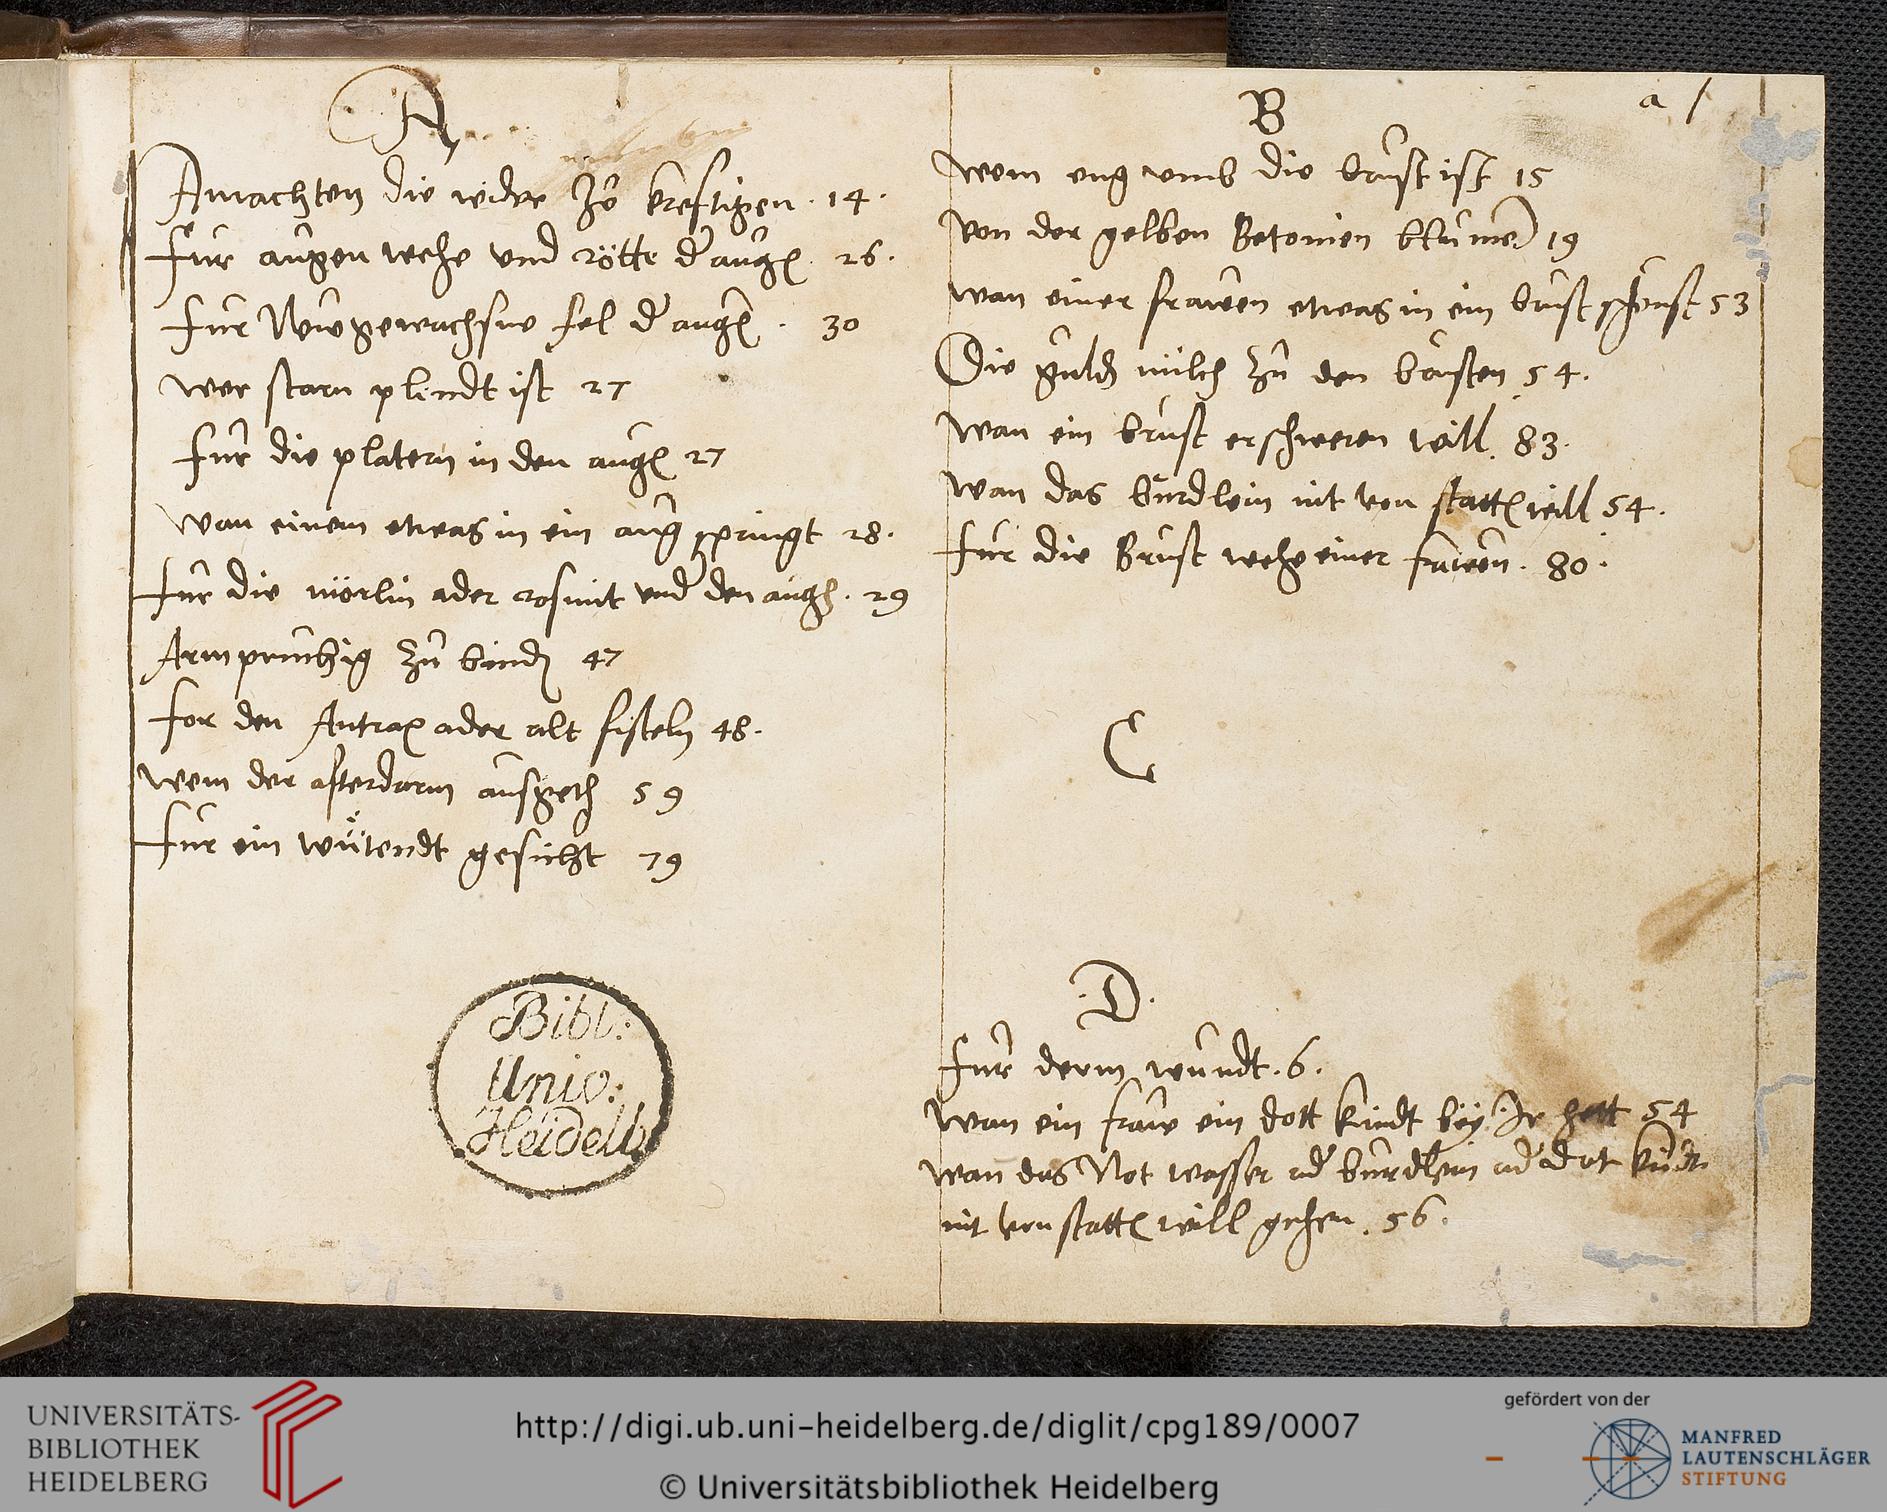 A
Amachten die widee zů kreftigen . 14 .
für augen wehe vnd rötte d' aug[e] 26 .
für Nwgewachsne fel d' aug[e] . 30
wer starn plindt ist 27
für die platern in den aug[e] 27
wan einem etwas in ein aug springt 28 .
für die mörlin ader rosmit vnd' den aug[e] . 29
Armpruchig zu bind[e] 47
for den Antrax ader alt fisteln 48 .
wem der afterdarm ausgeth 59
fur ein wütendt gesicht 79
Bibl:
Univ:
Heidelb
a 1
B
wem eng vmb die brust ist 15
von der gelben Betonien blumen 19
wan einer frawen etwas in ein brust 53
Die milch zu den brusten 54 .
wan ein brust erschweren will . 83 .
wan das bürdlein nit von statt[e] will 54 .
für die Brust wehe einer frawen . 80 .
C
. D .
für derm wundt . 6 .
wan ein fraw ein dott kindt bey Ir hett 54
wan das Not wasser ad' burdlein ad' dot kindt
nit von statt[e] will gehen . 56 .
UNIVERSITÄTS-
BIBLIOTHEK
HEIDELBERG
http://digi.ub.uni-heidelberg.de/diglit/cpg189/0007
© Universitätsbibliothek Heidelberg
gefördert von der
MANFRED
LAUTENSCHLÄGER
STIFTUNG